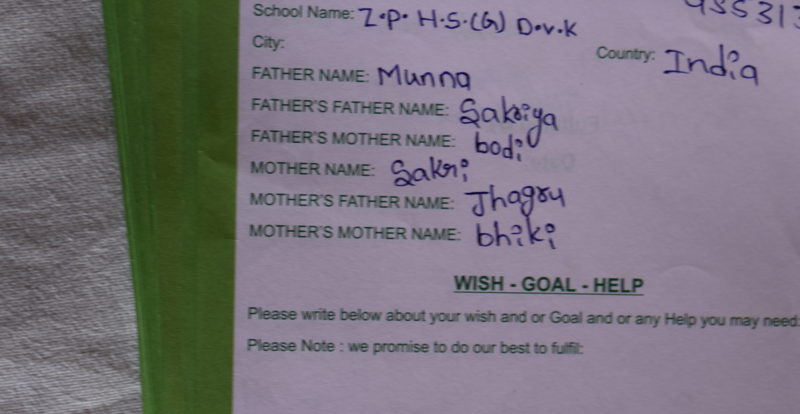 School Name: Z.P. H.S.(G) D.v.K
City:
Country: India
FATHER NAME: Munna
FATHER'S FATHER NAME: Sakriya
FATHER'S MOTHER NAME: bodi
MOTHER NAME: Sakri
MOTHER'S FATHER NAME: Jhagru
MOTHER'S MOTHER NAME: bhiki
WISH - GOAL - HELP
Please write below about your wish and or Goal and or any Help you may need
Please Note : we promise to do our best to fulfil: